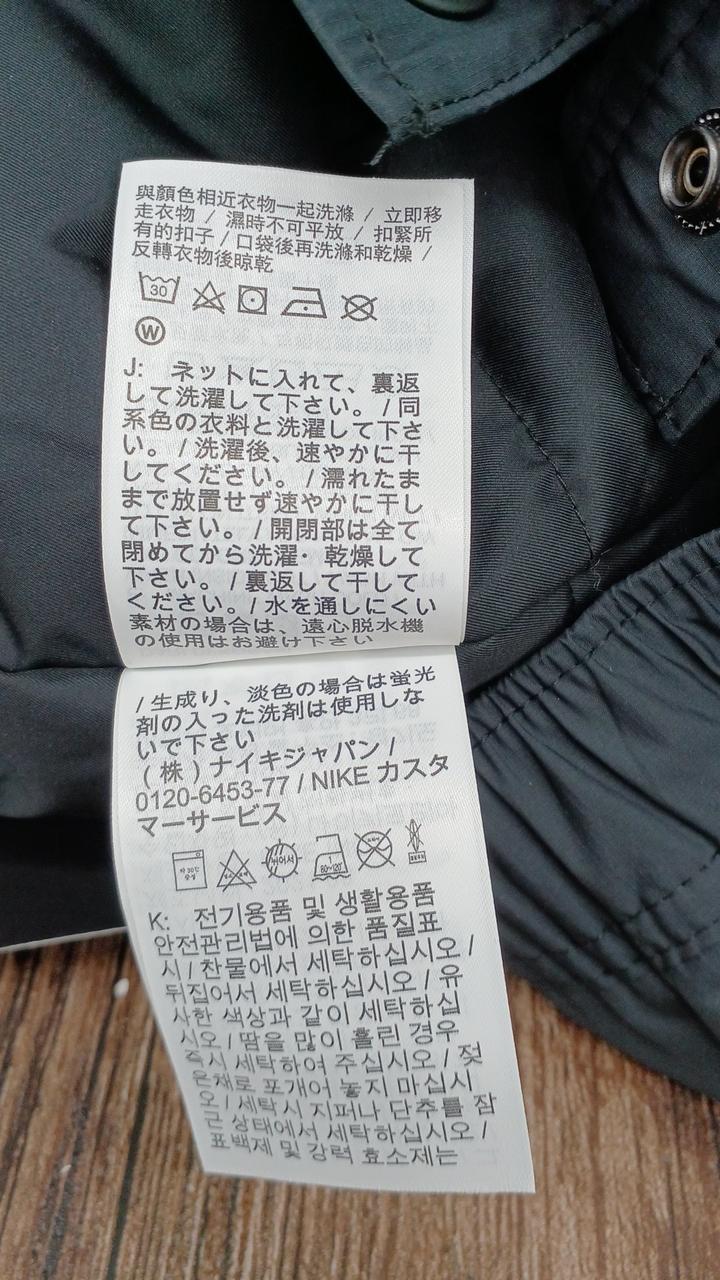 與顏色相近衣物一起洗滌 / 立即移
走衣物 / 濕時不可平放 / 扣緊所
有的扣子 / 口袋後再洗滌和乾燥 /
反轉衣物後晾乾
30
W
J: ネットに入れて、裏返
して洗濯して下さい。 / 同
系色の衣料と洗濯して下さ
い。 / 洗濯後、速やかに干
してください。 / 濡れたま
まで放置せず速やかに干し
て下さい。 / 開閉部は全て
閉めてから洗濯・乾燥して
下さい。 / 裏返して干して
ください。/ 水を通しにくい
素材の場合は、遠心脱水機
の使用はお避け下さい
/ 生成り、淡色の場合は蛍光
剤の入った洗剤は使用しな
いで下さい
(株) ナイキジャパン /
0120-6453-77 / NIKE カスタ
マーサービス
약 30℃
중성
뉘어서
1
80~120℃
K: 전기용품 및 생활용품
안전관리법에 의한 품질표
시 / 찬물에서 세탁하십시오 /
뒤집어서 세탁하십시오 / 유
사한 색상과 같이 세탁하십
시오 / 땀을 많이 흘린 경우
즉시 세탁하여 주십시오 / 젖
은채로 포개어 놓지 마십시
오 / 세탁시 지퍼나 단추를 잠
근 상태에서 세탁하십시오 /
표백제 및 강력 효소제는